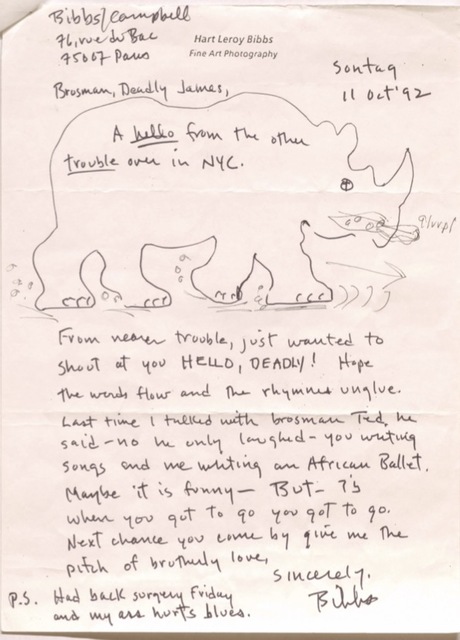 Bibbs/Campbell
76, rue du Bac
75007 Paris
Hart Leroy Bibbs
Fine Art Photography
Sontag
11 Oct '92
Brosman, Deadly James,
A hello from the other
trouble over in NYC.
glurrp!
From nearer trouble, just wanted to
shout at you HELLO, DEADLY! Hope
the words flow and the rhymnes unglue.
Last time I talked with brosman Ted, he
said - no he only laughed - you writing
songs and me writing an African Ballet.
Maybe it is funny - But - ?'s
when you got to go you got to go.
Next chance you come by give me the
pitch of brotherly love,
Sincerely,
Bibbs
P.S. Had back surgery Friday
and my ass hurts blues.